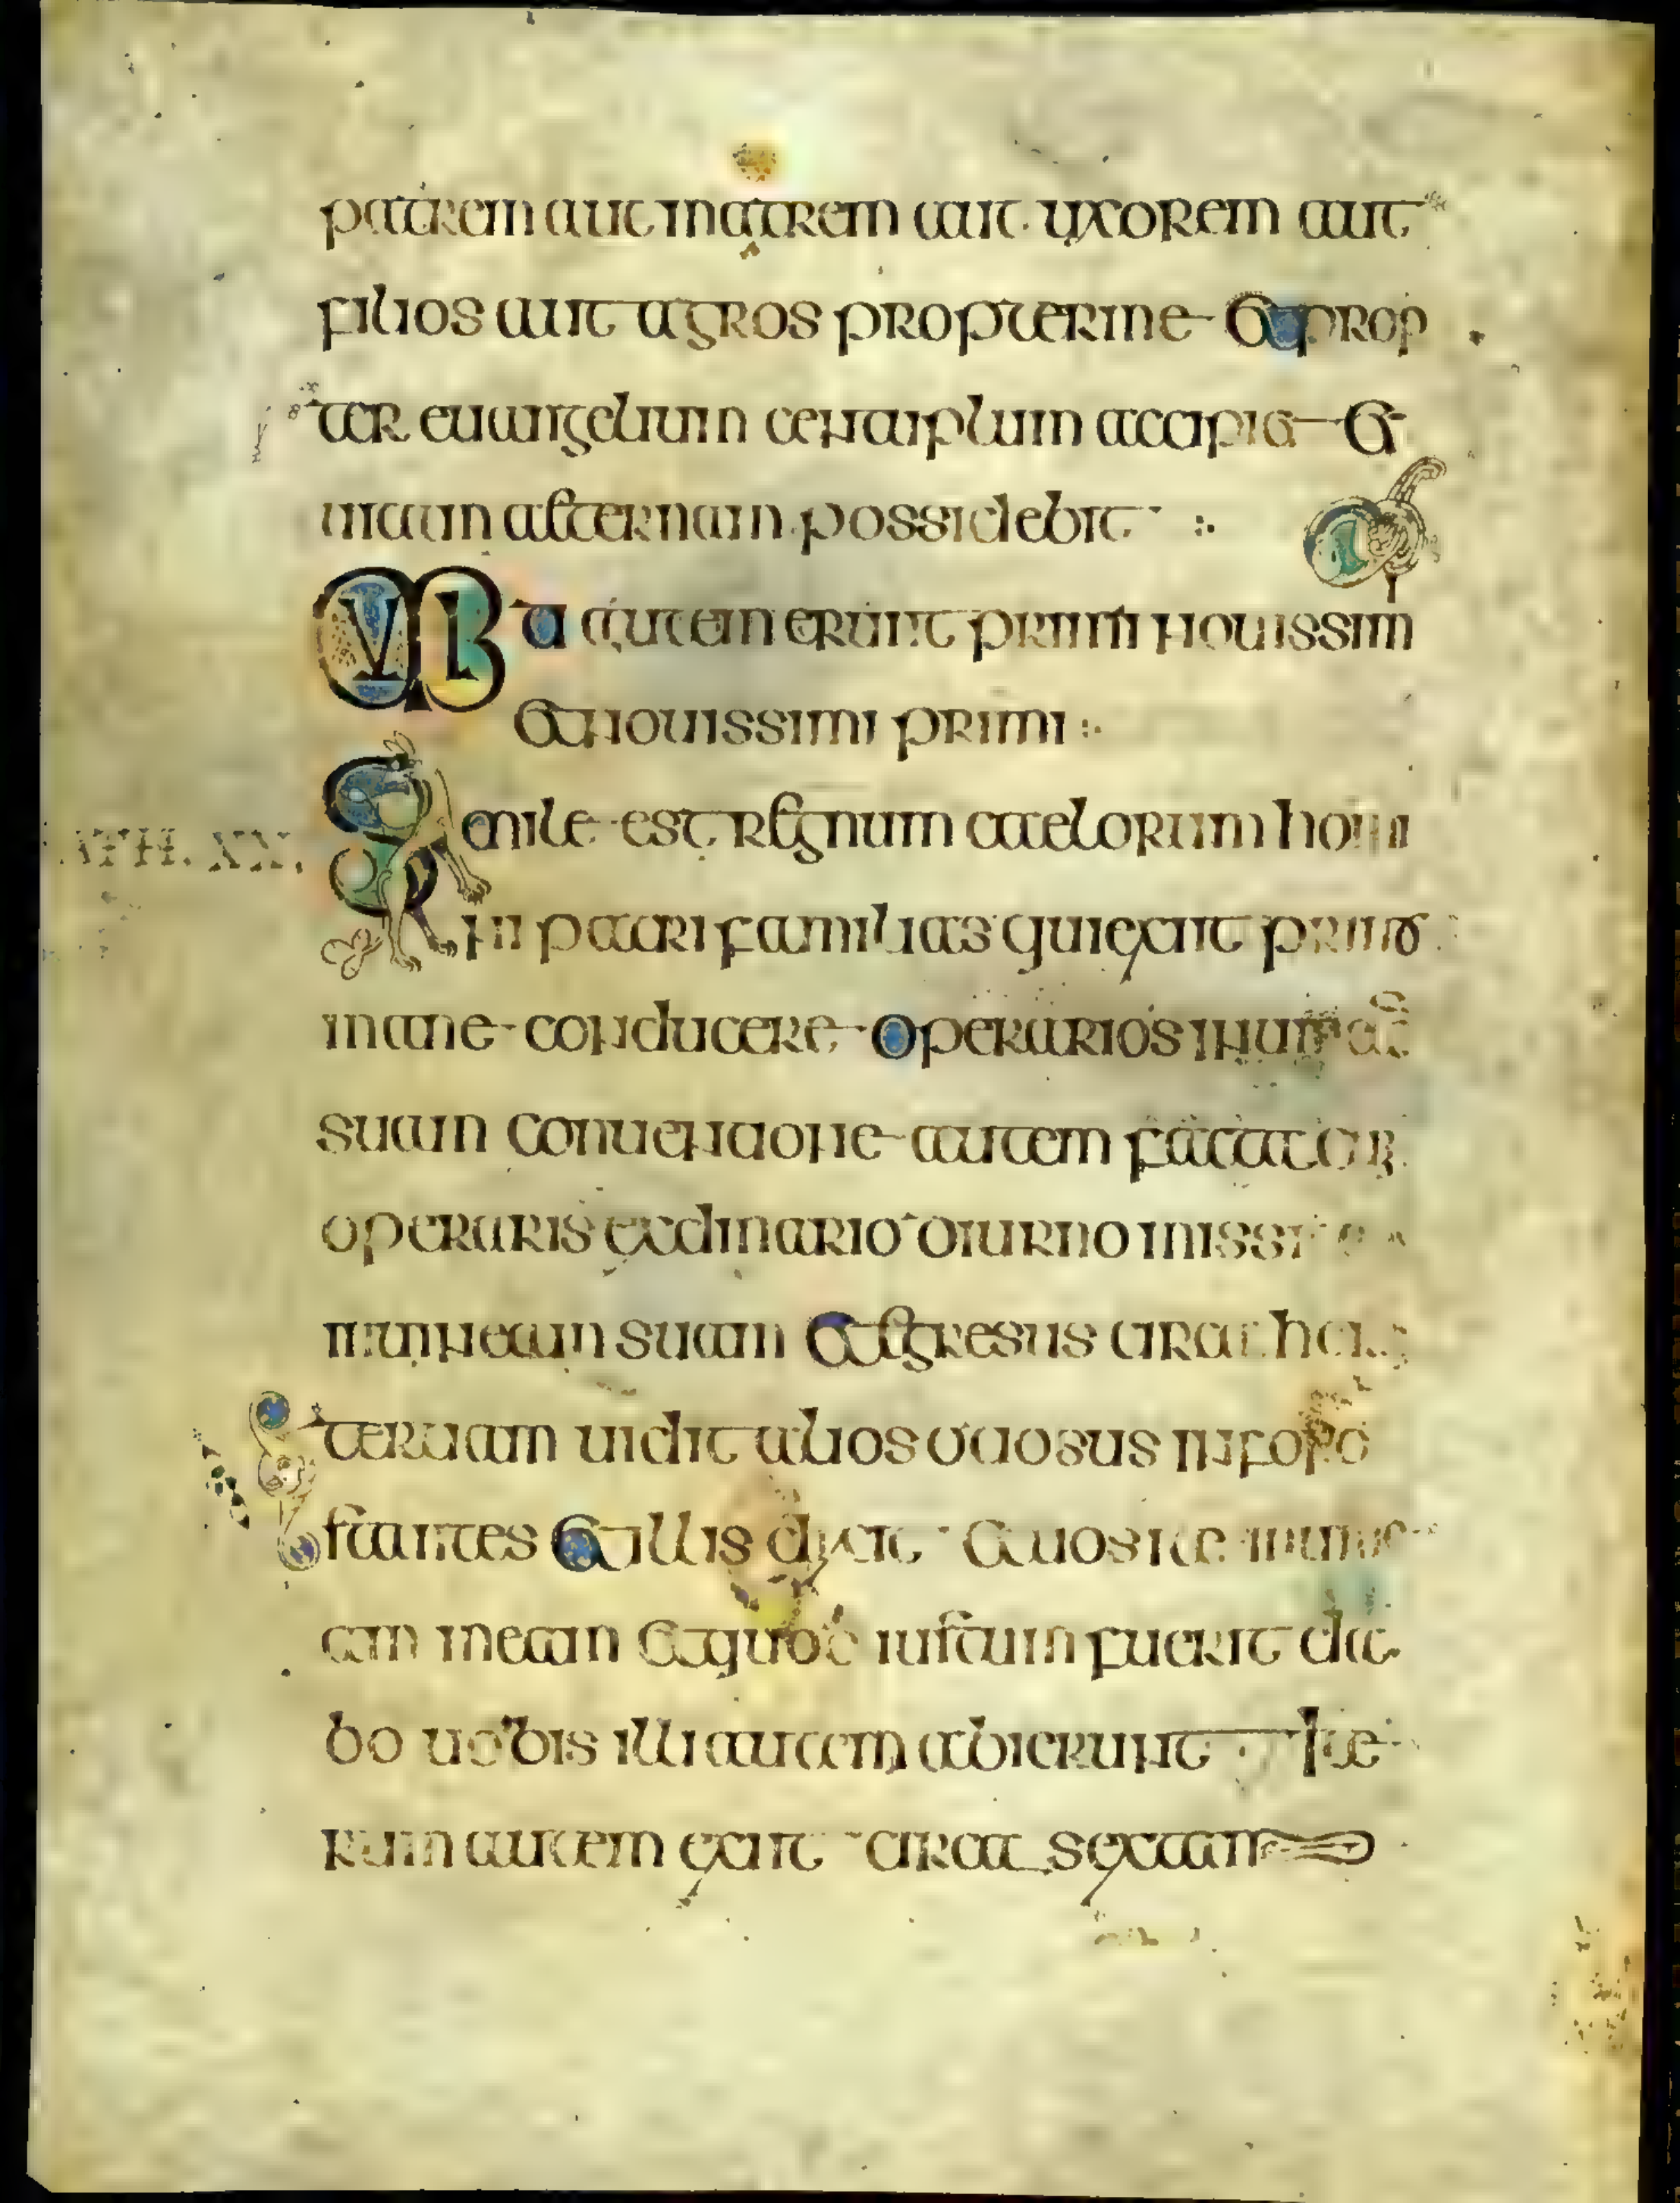 patrem aut matrem aut uxorem aut
filios aut agros propter me et prop
ter euangelium centuplum accipiet et
uitam aeternam possidebit
Multi autem erunt primi nouissimi
et nouissimi primi
Simile est regnum caelorum homi
MATH. XX.
ni patri familias qui exiit primo
mane conducere operarios in uineam
suam conuentione autem facta cum
operaris ex dinario diurno missit eos
in uineam suam et egresus circa horam
tertiam uidit alios otiosus in foro
stantes et illis dixit et uos ite in uine
am meam et quod iustum fuerit da
bo uobis illi autem abierunt Ite
rum autem exiit circa sextam